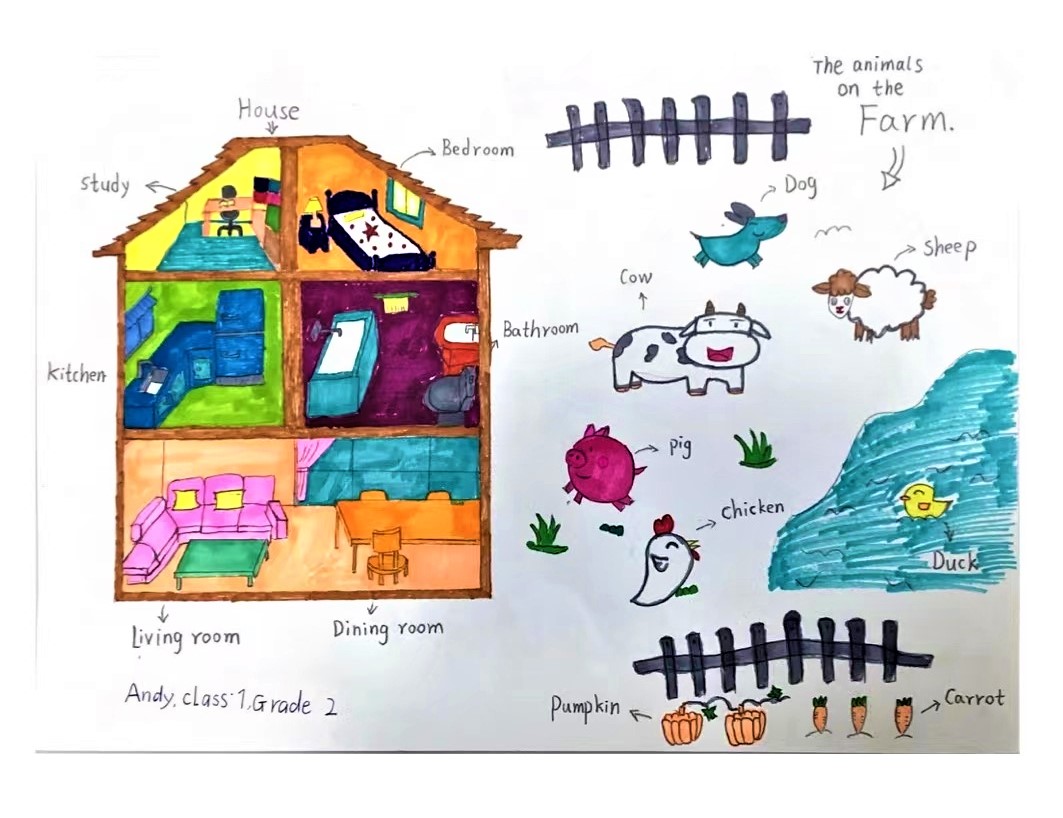 House
study
Bedroom
Kitchen
Bathroom
Living room
Dining room
Andy, class 1, Grade 2
The animals
on the
Farm.
Dog
sheep
Cow
pig
chicken
Duck
Pumpkin
Carrot